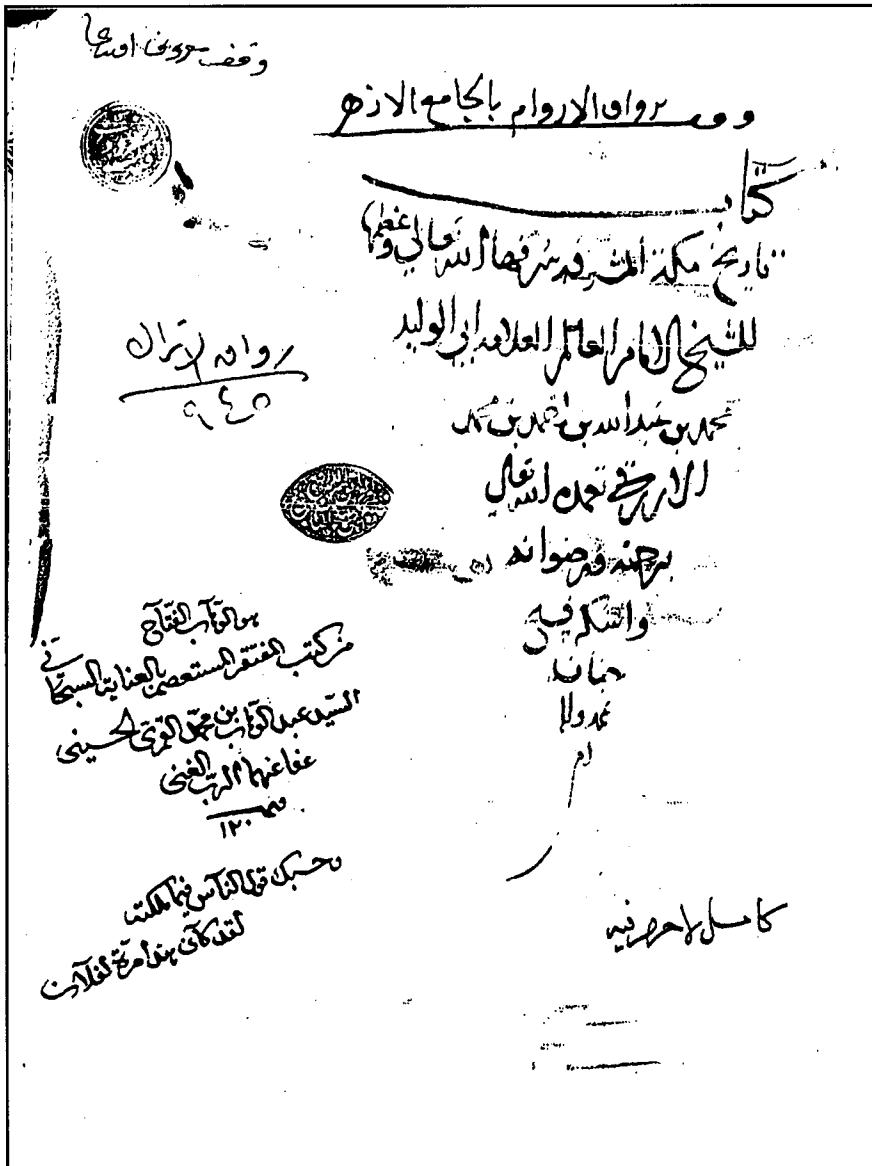 وقف
وقف برواق الاروام بالجامع الازهر
كتاب
تاريخ مكة المشرفه شرفها الله تعالي وعظمها
للشيخ الامام العالم العلامه ابي الوليد
محمد بن عبد الله بن احمد بن محمد
الازرقي تغمده الله تعالي
برحمته ورضوانه
واسكنه فسيح
جنانه
رواق الاتراك
٩٤٥
هو الوهاب الفتاح
من كتب الفقير المستعصم بالعناية السبحاني
السيد عبد الوهاب بن محمد الحسيني
عفا عنهما الرب الغني
١٢٠
وحسبك قول الناس فيما ملكته
لقد كان هذا مرة لفلان
كامل